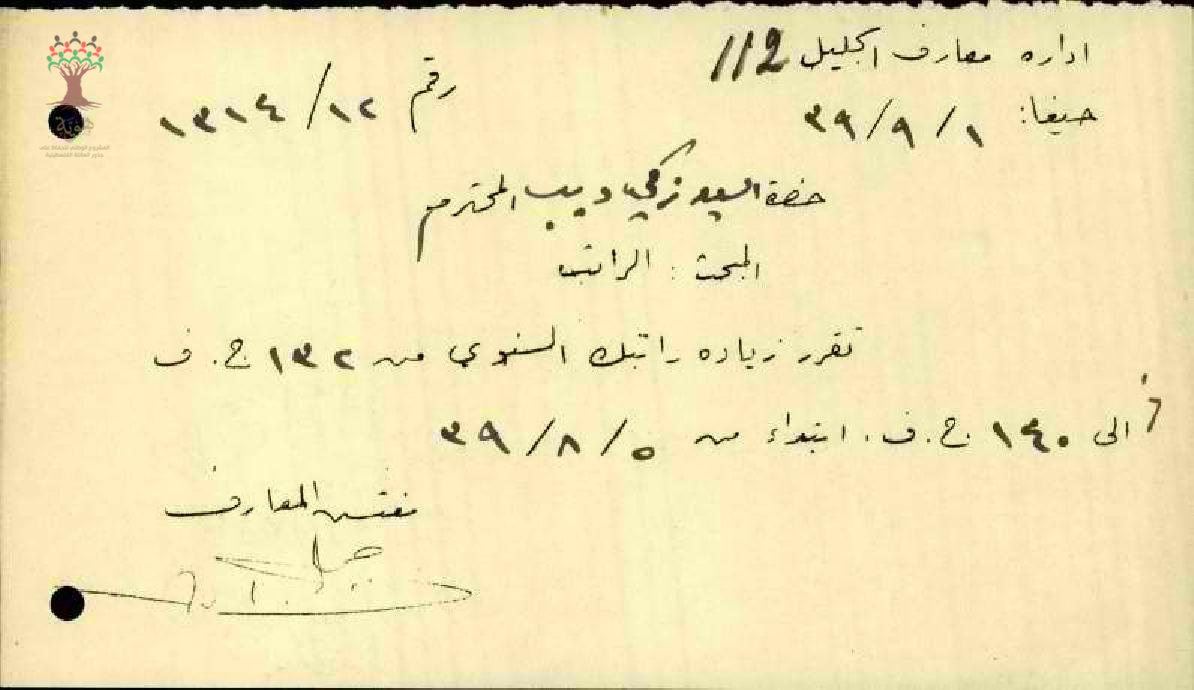 اداره معارف الجليل 112
رقم ١٢/١٣١٤
حيفا: ١/٩/٣٩
حضرة السيد زكي ديب المحترم
المبحث: الراتب
تقرر زياده راتبك السنوي من ١٣٢ ج. ف
الى ١٤٠ ج. ف. ابتداء من ٥/٨/٣٩
مفتش المعارف
هوية